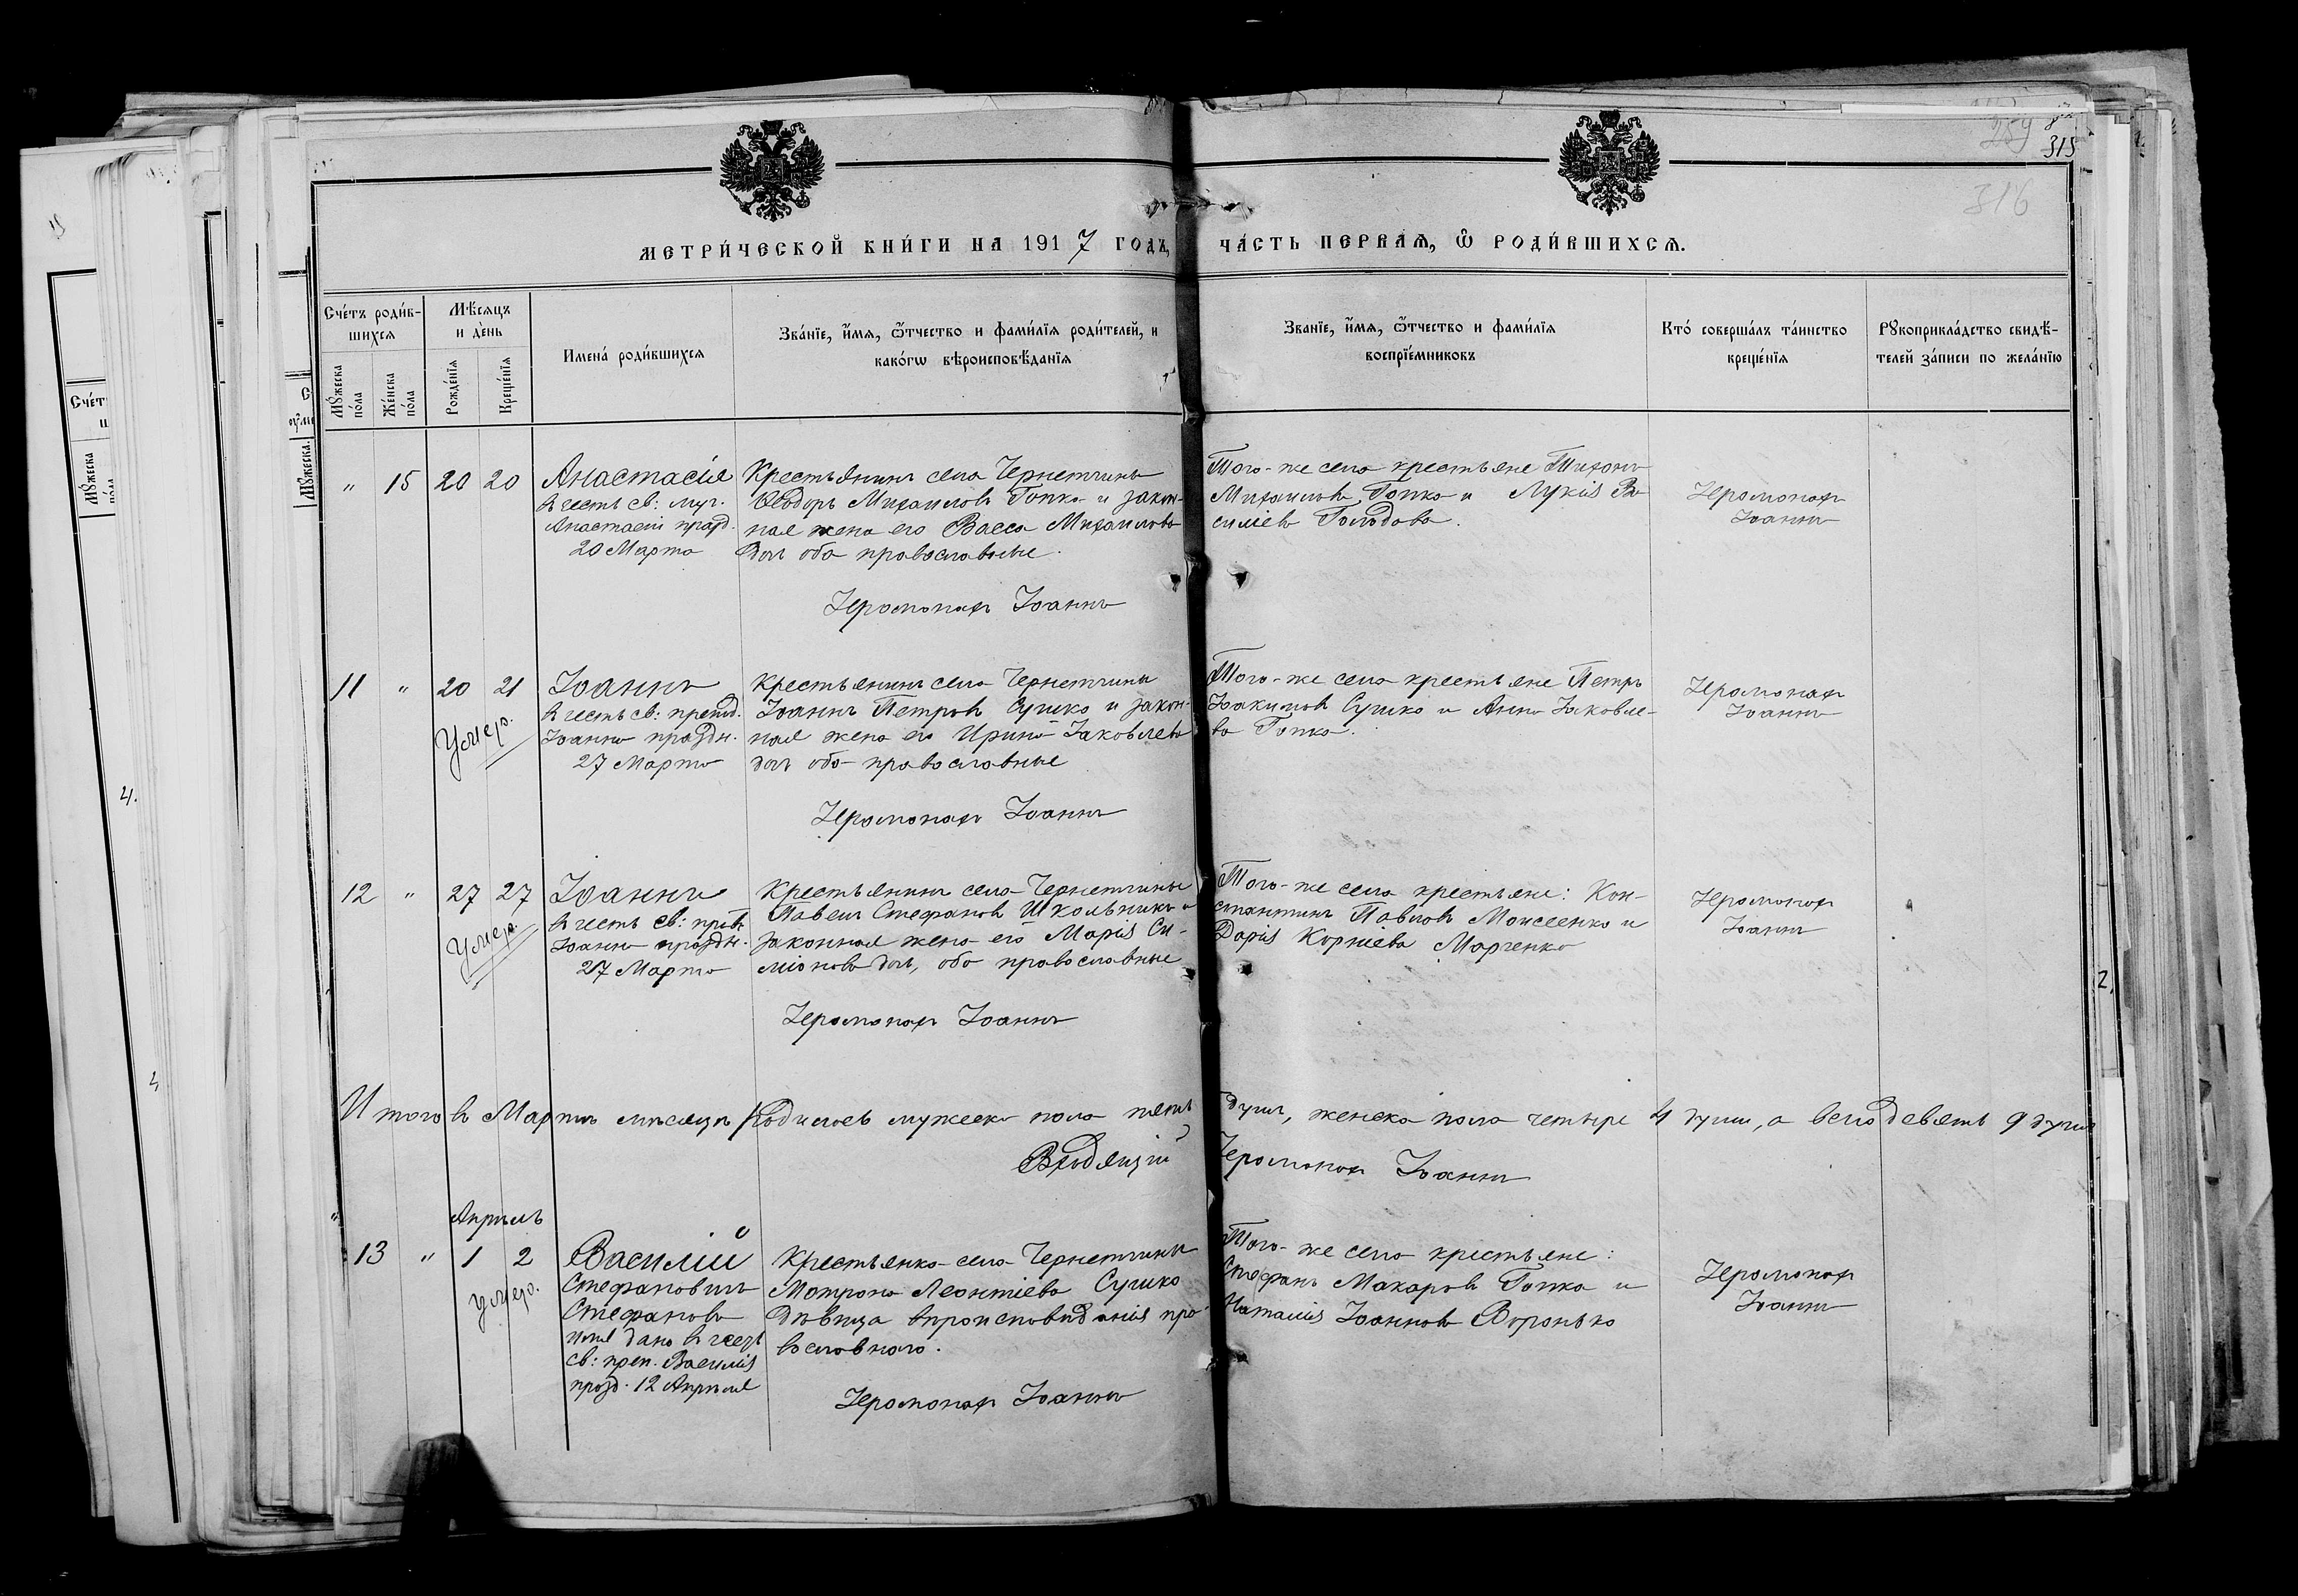 315
316
МЕТРИ́ЧЕСКОЙ КНИ́ГИ НА 1917 ГОДЪ,
ЧА́СТЬ ПЕРВАѦ, Ѡ РОДИ́ВШИХСѦ.
Сче́тъ роди́в-
шихся
Мꙋ́жеска
по́ла
Же́нска
по́ла
Мѣ́сяцъ
и де́нь
Рожде́нїя
Креще́нїя
Имена̀ роди́вшихся
Зва́нїе, и́мѧ, ѻ҆́тчество и фами́лїѧ роди́телей, и
како́гѡ вѣроисповѣ́данїѧ
Званїе, и́мѧ, ѻ҆́тчество и фами́лїѧ
воспрїе́мниковъ
Кто́ соверша́лъ та́инство
креще́нїя
Рꙋкоприкла́дство свидѣ́-
телей за́писи по жела́нїю
" 15 20 20
Анастасія
въ честь св: муч.
Анастасіи празд.
20 Марта
Крестьянинъ села Чернетчины
Ѳеодоръ Михаиловъ Гопка и закон-
ная жена его Васса Михаилова
оба православные.
Іеромонахъ Іоаннъ
Того-же села крестьяне Тихонъ
Михаиловъ Гопка и Лукія Ва
силіева Голодова.
Іеромонахъ
Іоаннъ
11 " 20 21
Умеръ.
Іоаннъ
въ честь св: препод.
Іоанна праздн.
27 Марта
Крестьянинъ села Чернетчины
Іоаннъ Петровъ Сушко и закон-
ная жена его Ирина Іаковлева
оба православные
Іеромонахъ Іоаннъ
Того-же села крестьяне Петръ
Іоакимовъ Сушко и Анна Іаковле-
ва Гопка.
Іеромонахъ
Іоаннъ
12 " 27 27
Умеръ.
Іоаннъ
въ честь св:
Іоанна праздн.
27 Марта
Крестьянинъ села Чернетчины
Павелъ Стефановъ Школьникъ и
законная жена его Марія Си-
меонова оба православные
Іеромонахъ Іоаннъ
Того-же села крестьяне: Кон-
стантинъ Павловъ Моисеенко и
Дарія Корніева Марченко
Іеромонахъ
Іоаннъ
Итого въ Мартѣ мѣсяцѣ родилось мужеска пола пять душъ, женска пола четыре 4 души, а всего девять 9 душъ
Іеромонахъ Іоаннъ
Апрѣль
13 " 1 2
Умеръ.
Василій
Стефановичъ
Стефановъ
имя дано въ честь
св: преп. Василія
празд. 12 Апрѣля
Крестьянка села Чернетчины
Матрона Леонтіева Сушко
дѣвица вѣроисповѣданія пра
вославнаго.
Іеромонахъ Іоаннъ
Того-же села крестьяне:
Стефанъ Макаровъ Гопка и
Наталія Іоаннова Воронько
Іеромонахъ
Іоаннъ